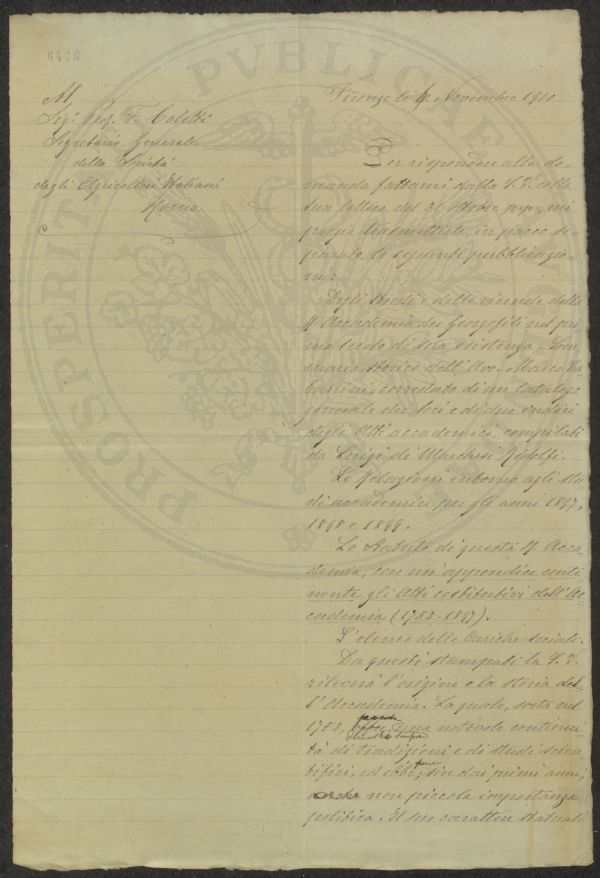 6468
Al
Sig. Prof. F. Coletti
Segretario Generale
della Società
degli Agricoltori Italiani
Roma
Firenze li Novembre 1900
Per rispondere alla do-
manda fattami dalla S.V. colla
sua lettera del 31 Ottobre p.p., mi
pregio trasmetterle, in pacco se-
parato, le seguenti pubblicazio-
ni:
Degli studi e delle vicende della
R. Accademia dei Georgofili nel pri-
mo secolo di sua esistenza - Som-
mario storico dell'Avv. Marco Ta-
barrini, corredato di un Catalogo
generale dei Soci e di due indici
degli Atti accademici, compilati
da Luigi de' Marchesi Ridolfi.
Le Relazioni intorno agli stu-
di accademici per gli anni 1897,
1898 e 1899.
Lo Statuto di questa R. Acca-
demia, con un'appendice conte-
nente gli Atti costitutivi dell'Ac-
cademia (1753-1897).
L'elenco delle Cariche sociali.
Da questi stampati la S.V.
rileverà l'origine e la storia del-
l'Accademia. La quale, sorta nel
1753, sempre notevole continui-
tà di tradizioni e di studi scien-
tifici, ed ebbe pure, sin dai primi anni,
non piccola importanza
politica. Il suo carattere statuale
PROSPERITATI PVBLICAE AVG